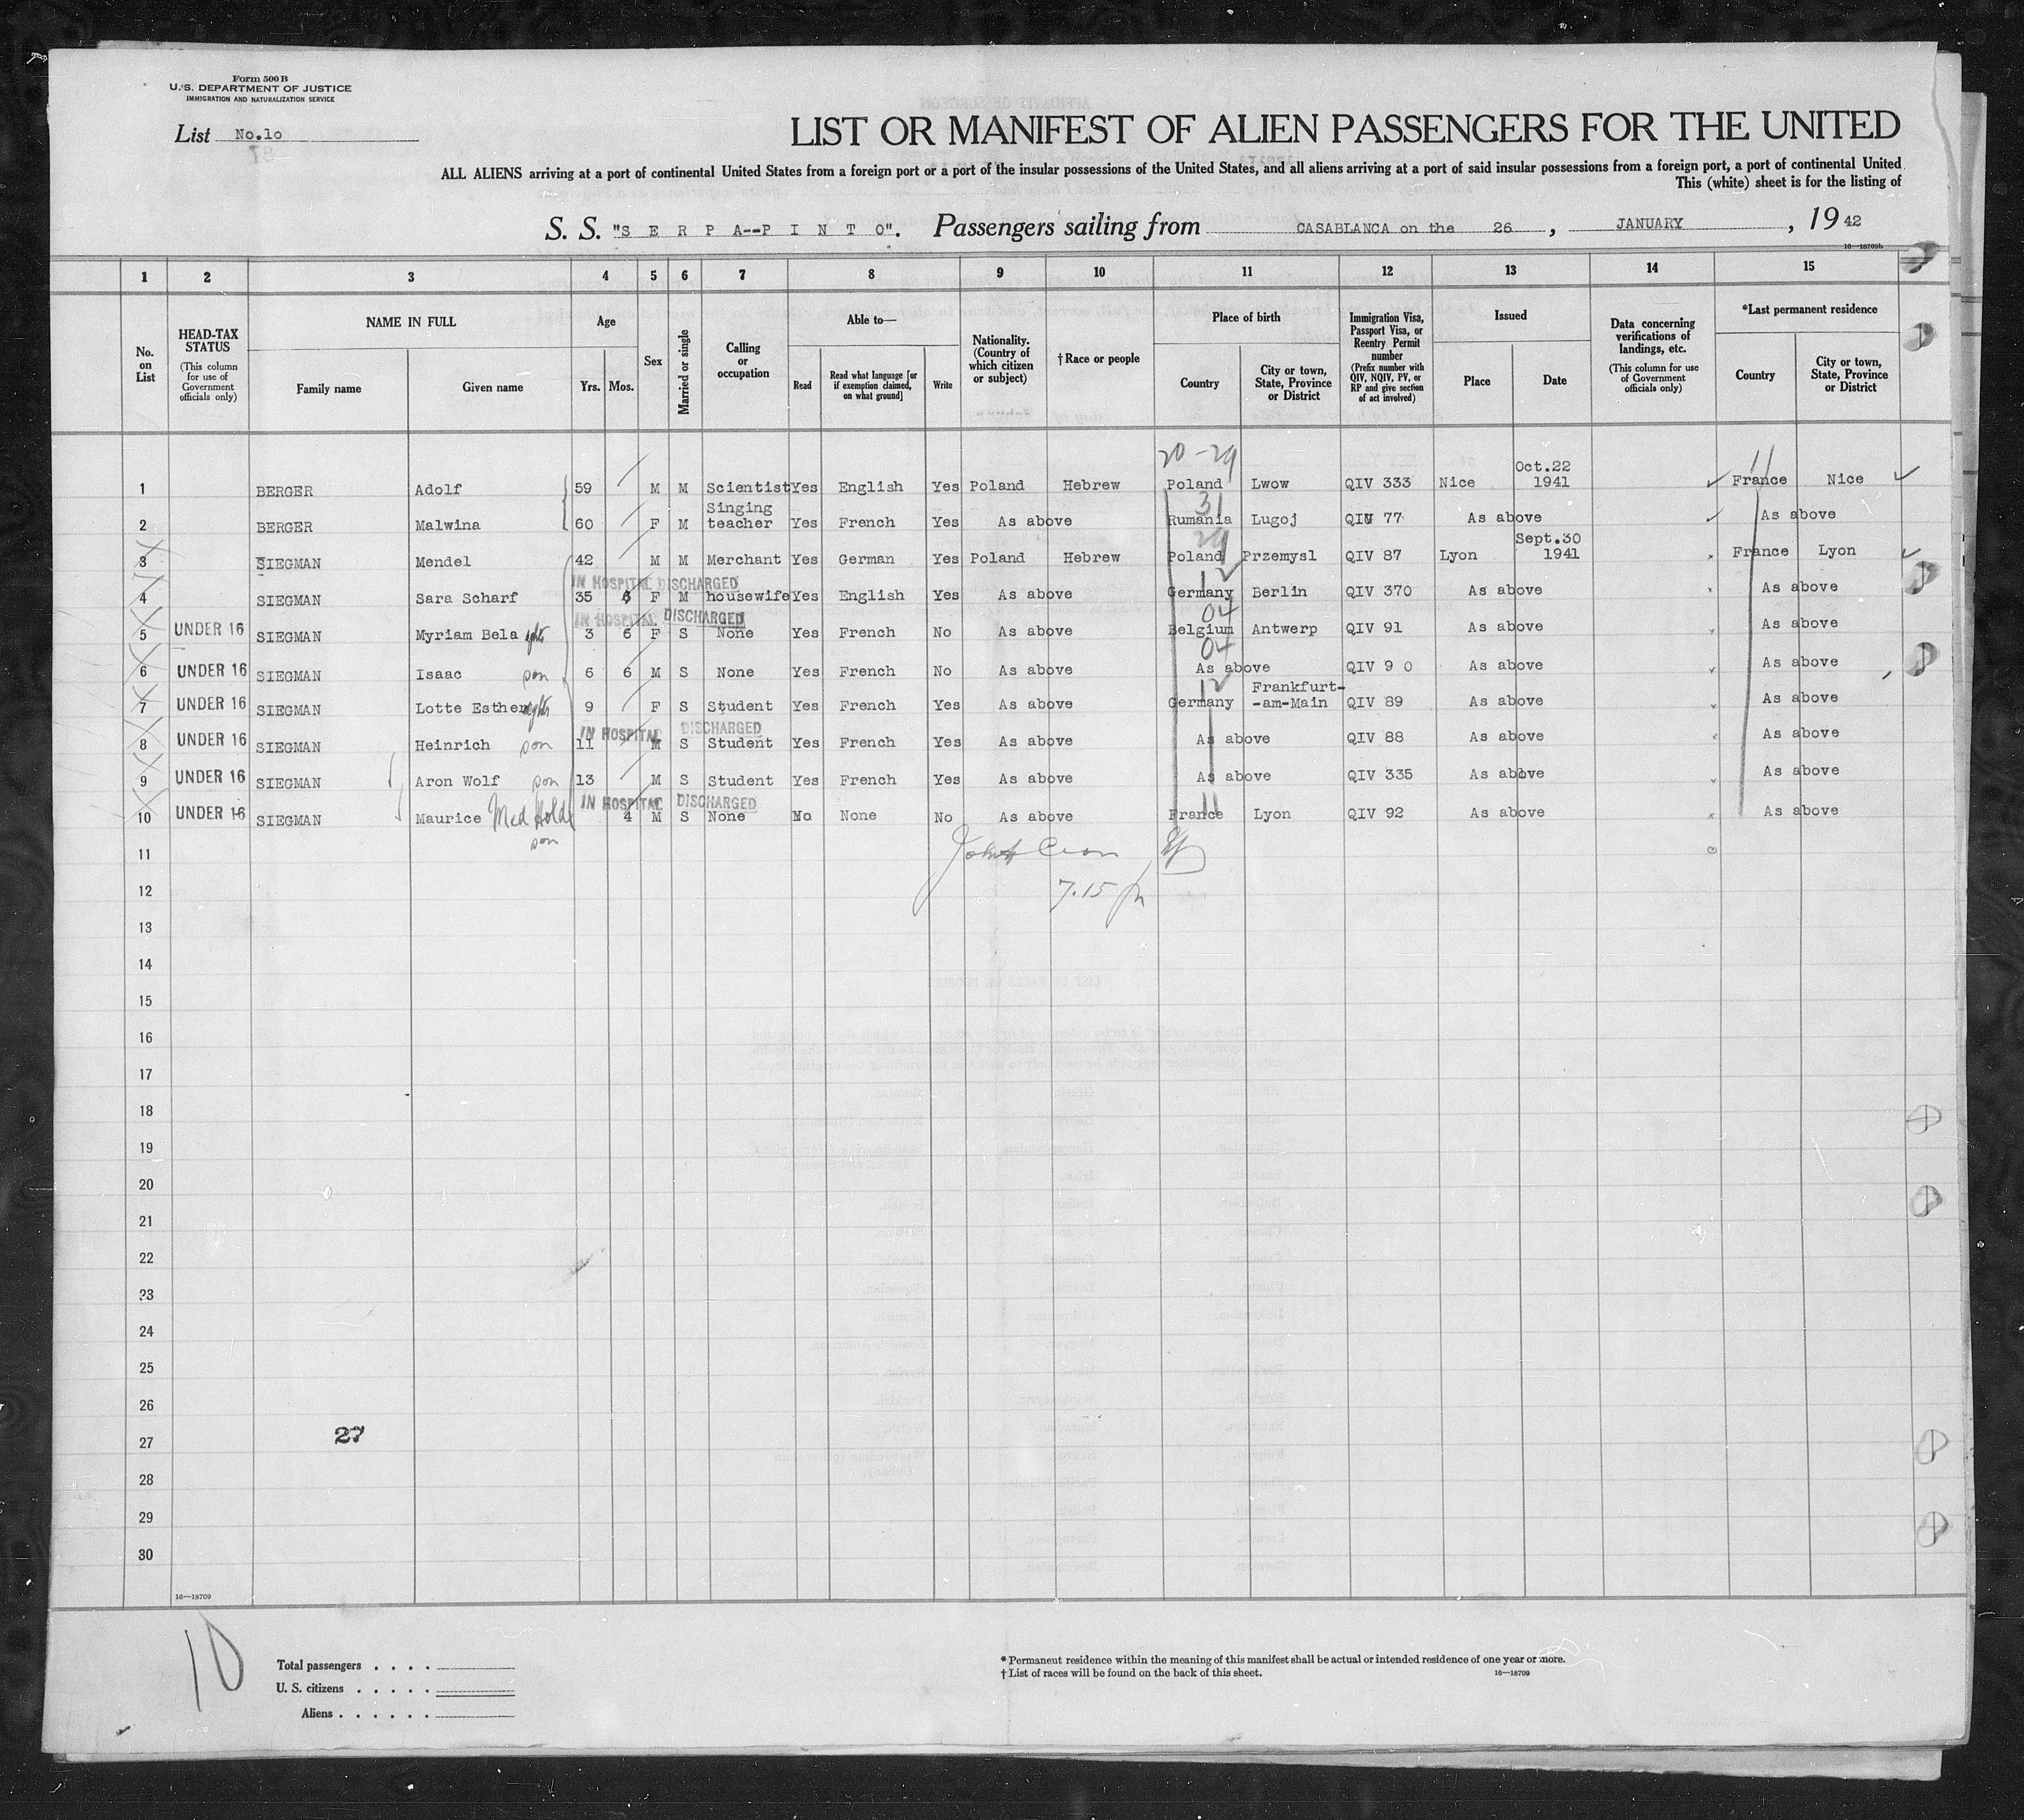 Form 500 B
U. S. DEPARTMENT OF JUSTICE
IMMIGRATION AND NATURALIZATION SERVICE
List No.1o
LIST OR MANIFEST OF ALIEN PASSENGERS FOR THE UNITED
ALL ALIENS arriving at a port of continental United States from a foreign port or a port of the insular possessions of the United States, and all aliens arriving at a port of said insular possessions from a foreign port, a port of continental United
This (white) sheet is for the listing of
S. S. "S E R P A--P I N T O". Passengers sailing from CASABLANCA on the 26 , JANUARY , 19 42
16—18709b
1 2 3 4 5 6 7 8 9 10 11 12 13 14 15
No. on List
HEAD-TAX STATUS (This column for use of Government officials only)
NAME IN FULL Family name Given name
Age Yrs. Mos.
Sex
Married or single
Calling or occupation
Able to— Read Read what language [or if exemption claimed, on what ground] Write
Nationality. (Country of which citizen or subject)
† Race or people
Place of birth Country City or town, State, Province or District
Immigration Visa, Passport Visa, or Reentry Permit number (Prefix number with QIV, NQIV, PV, or RP and give section of act involved)
Issued Place Date
Data concerning verifications of landings, etc. (This column for use of Government officials only)
*Last permanent residence Country City or town, State, Province or District
20-29 11
1 BERGER Adolf 59 M M Scientist Yes English Yes Poland Hebrew Poland Lwow QIV 333 Nice Oct.22 1941 France Nice
31
2 BERGER Malwina 60 F M Singing teacher Yes French Yes As above Rumania Lugoj QIV 77 As above As above
29
3 SIEGMAN Mendel 42 M M Merchant Yes German Yes Poland Hebrew Poland Przemysl QIV 87 Lyon Sept.30 1941 France Lyon
IN HOSPITAL DISCHARGED 12
4 SIEGMAN Sara Scharf 35 6 F M housewife Yes English Yes As above Germany Berlin QIV 370 As above As above
IN HOSPITAL DISCHARGED 04
5 UNDER 16 SIEGMAN Myriam Bela 3 6 F S None Yes French No As above Belgium Antwerp QIV 91 As above As above
04
6 UNDER 16 SIEGMAN Isaac son 6 6 M S None Yes French No As above As above QIV 9 0 As above As above
12
7 UNDER 16 SIEGMAN Lotte Esther 9 F S Student Yes French Yes As above Germany Frankfurt--am-Main QIV 89 As above As above
IN HOSPITAL DISCHARGED
8 UNDER 16 SIEGMAN Heinrich son 11 M S Student Yes French Yes As above As above QIV 88 As above As above
9 UNDER 16 SIEGMAN Aron Wolf son 13 M S Student Yes French Yes As above As above QIV 335 As above As above
IN HOSPITAL DISCHARGED 11
10 UNDER 16 SIEGMAN Maurice Med Hold son 4 M S None No None No As above France Lyon QIV 92 As above As above
11
12 7.15
13
14
15
16
17
18
19
20
21
22
23
24
25
26
27 27
28
29
30
16—18709
10
Total passengers . . . .
U. S. citizens . . . . .
Aliens . . . . . .
* Permanent residence within the meaning of this manifest shall be actual or intended residence of one year or more.
† List of races will be found on the back of this sheet. 16—18709